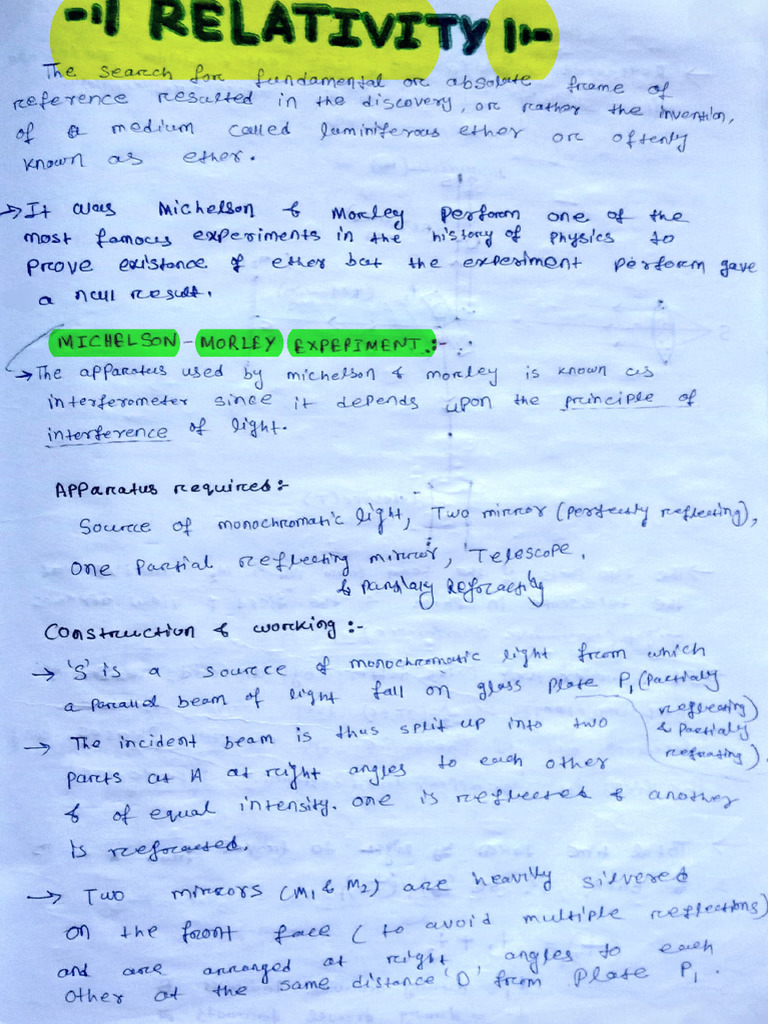 RELATIVITY
The search for fundamental or absolute frame of
reference resulted in the discovery, or rather the invention,
of a medium called luminiferous ether or oftenly
known as ether.
→ It was Michelson & Morley perform one of the
most famous experiments in the history of physics to
prove existance of ether but the experiment perform gave
a null result.
MICHELSON - MORLEY EXPERIMENT :-
→ The apparatus used by michelson & morley is known as
interferometer since it depends upon the principle of
interference of light.
Apparatus required:-
Source of monochromatic light, Two mirror (perfectly reflecting),
one Partial reflecting mirror, Telescope.
&
Construction & working :-
→ 'S' is a source of monochromatic light from which
a parallel beam of light fall on glass plate P₁ (Partialy
reflecting)
& Partialy
refrating)
→ The incident beam is thus split up into two
parts at A at right angles to each other
& of equal intensity. one is reflected & another
is refracted.
→ Two mirrors (M₁ & M₂) are heavily silvered
on the front face (to avoid multiple reflections)
and are arranged at right angles to each
other at the same distance 'D' from plate P₁.